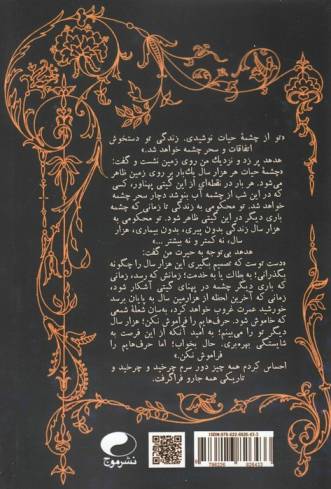 «تو از چشمهٔ حیات نوشیدی. زندگی تو دستخوش
اتفاقات و سحر چشمه خواهد شد.»
هدهد پر زد و نزدیک من روی زمین نشست و گفت:
«چشمهٔ حیات هر هزار سال یک‌بار بر روی زمین ظاهر
می‌شود. هر بار در نقطه‌ای از این گیتی پهناور، کسی
که در این شب از چشمه آب بنوشد دچار سحر چشمه
خواهد شد. تو محکومی به زندگی تا زمانی که چشمه
باری دیگر در این گیتی ظاهر شود. تو محکومی به
هزار سال زندگی بدون پیری، بدون بیماری، هزار
سال، نه کمتر و نه بیشتر ...»
هدهد بی‌توجه به حیرت من گفت:
«دست توست که تصمیم بگیری این هزار سال را چگونه
بگذرانی؛ به بطالت یا به خدمت؛ زمانش که رسد، زمانی
که باری دیگر چشمه در پهنای گیتی آشکار شود،
زمانی که آخرین لحظه از هزارمین سال به پایان برسد
خورشید عمرت غروب خواهد کرد، به‌سان شعلهٔ شمعی
که خاموش شود. حرف‌هایم را فراموش نکن! هزار سال
دیگر تو را می‌بینم؛ به امید آنکه از این فرصت به
شایستگی بهره‌بری. حال بخواب؛ اما حرف‌هایم را
فراموش نکن.»
احساس کردم همه چیز دور سرم چرخید و چرخید و
تاریکی همه جا رو فراگرفت.
نشر موج